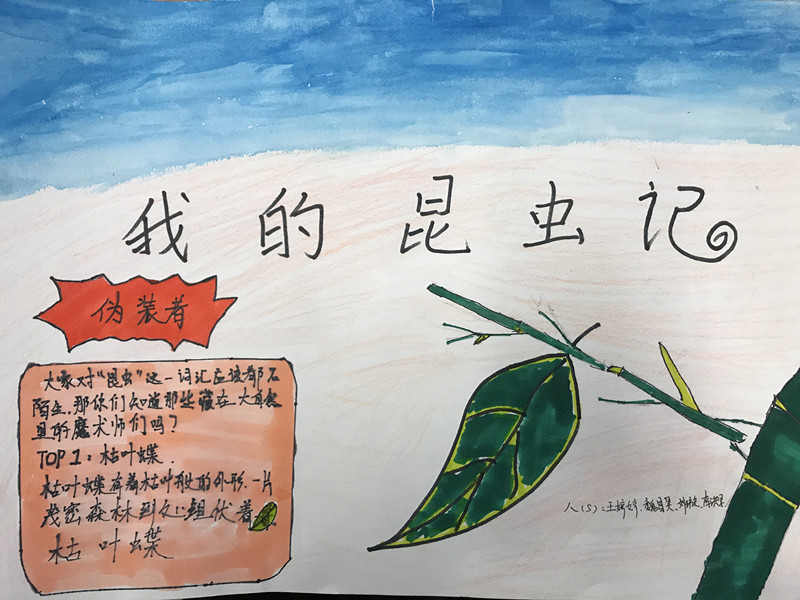 我的昆虫记
伪装者
大家对“昆虫”这一词汇应该都不
陌生,那你们知道那些藏在大自然
里的魔术师们吗?
TOP 1:枯叶蝶.
枯叶蝶有着枯叶般的外形.一片
茂密森林到处埋伏着
枯叶蝶
人(5):王婷